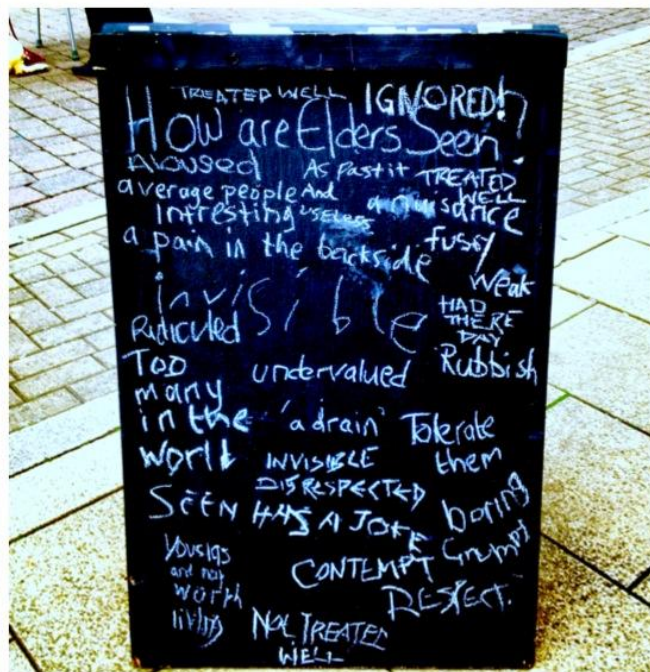 TREATED WELL IGNORED!
How are Elders Seen
As Past it TREATED WELL
average people And
intresting USELESS
a nuisance
fussy
a pain in the backside
weak
invisible
HAD
THERE
DAY
Ridiculed
Rubbish
TOO
many
in the
world
undervalued
'a drain'
Tolerate
them
INVISIBLE
DISRESPECTED
boring
SEEN HAS A JOKE
Grumpy
CONTEMPT
RESPECT.
and not
worth
living
NOT TREATED
WELL